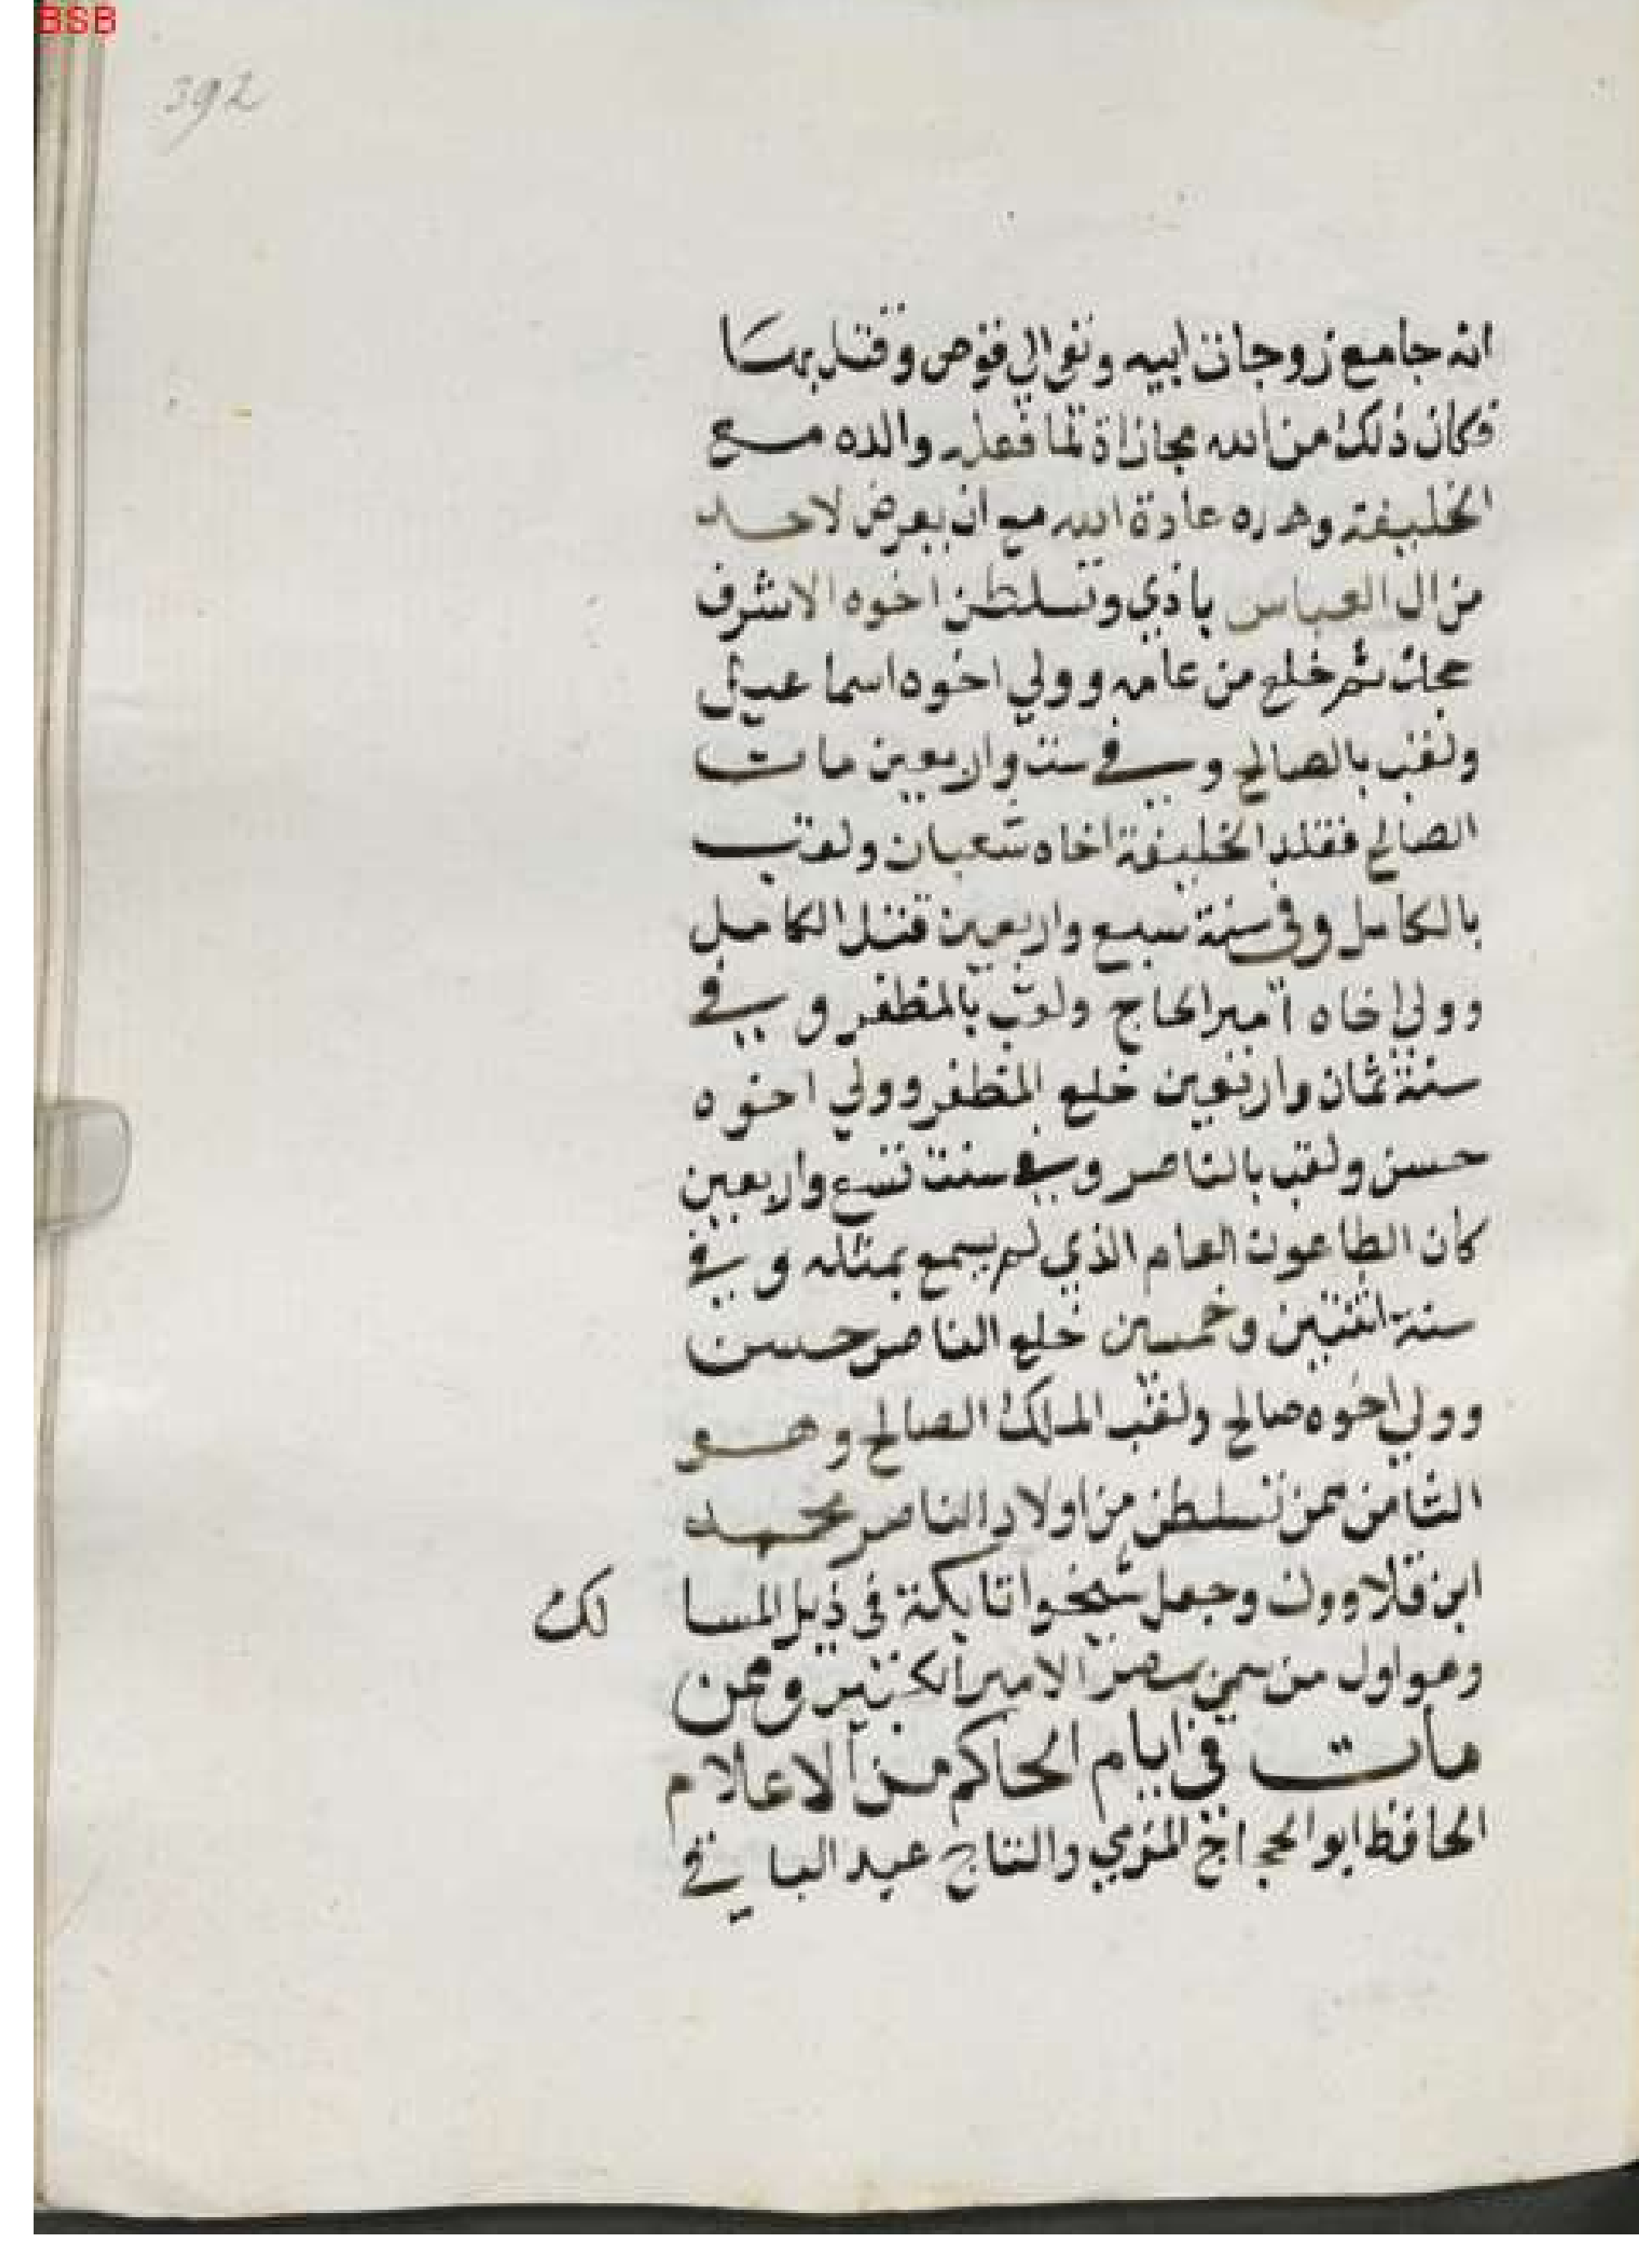 BSB
392
انه جامع زوجات ابيه ونفى الى قوص وقتل بها
فكان ذلك من الله مجازاة لما فعله والده مع
الخليفة وهده عادة الله مع ان يعرض لاحد
من ال العباس باذي وتسلطن اخوه الاشرف
ثم خلع من عامه وولي اخوه اسماعيل
ولقب بالصالح وفي ست واربعين مات
الصالح فقلد الخليفة اخاه شعبان ولقب
بالكامل وفي سنة سبع واربعين قتل الكامل
وولي اخاه امير الحاج ولقب بالمظفر وفي
سنة ثمان واربعين خلع المظفر وولي اخوه
حسن ولقب بالناصر وفي سنت تسع واربعين
كان الطاعون العام الذي لم يسمع بمثله وفي
سنة اثنتين وخمسين خلع الناصر حسن
وولي اخوه صالح ولقب الملك الصالح وهو
الثامن ممن تسلطن من اولاد الناصر محمد
ابن قلاوون وجعل شيخو اتابكة في ذيل المسا لك
وهو اول من سمي بمصر الامير الكبير وممن
مات في ايام الحاكم من الاعلام
الحافظ ابو الحجاج المزي والتاج عبد الباقي